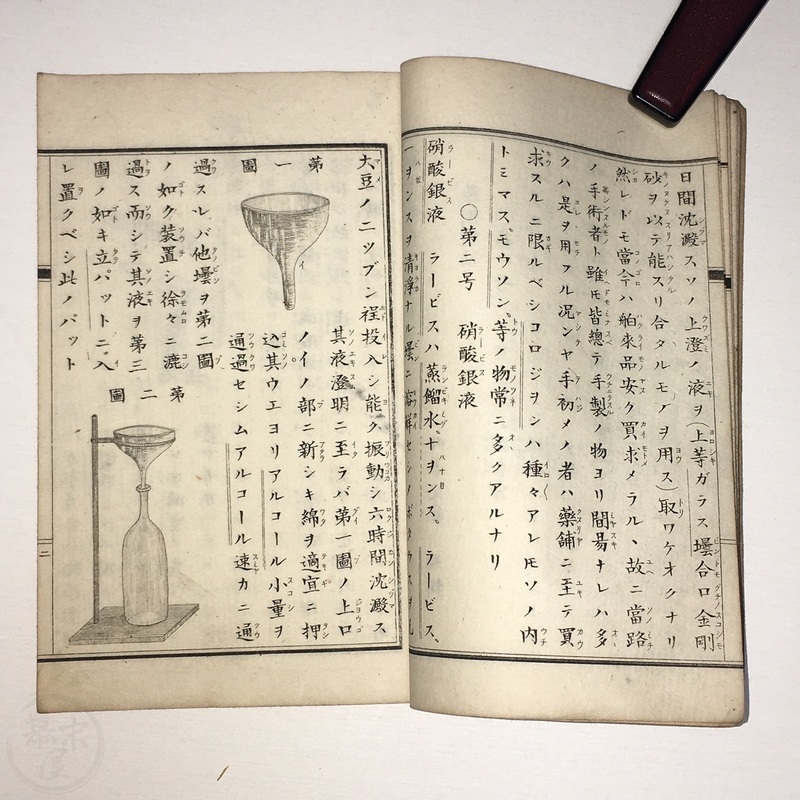 日間沈澱スソノ上澄ノ液ヲ(上等ガラス壜合口金剛
砂ヲ以テ能スリ合タルモノヲ用ス)取ワケオクナリ
然レドモ當今ハ舶來品安ク買求メラル、故ニ當路
ノ手術者ト雖𪜈皆總テ手製ノ物ヨリ間易ナレハ多
クハ是ヲ用フル况ンヤ手初メノ者ハ藥舖ニ至テ買
求スルニ限ルベシコロジヲシハ種々アレ𪜈ソノ内
トミマス。モウソン。等ノ物常ニ多クアルナリ
〇第二号 硝酸銀液
硝酸銀液 ラービスハ蒸餾水。十ヲンス。ラービス、
一ヲンスヲ清浄ナル壜ニ溶解セシ
大豆ノ二ツブン程投入シ能ク振動シ六時間沈澱ス
第一圖
イ
其液澄明ニ至ラバ第一圖ノ上口
ノイノ部ニ新シキ綿ヲ適宜ニ押
込其ウエヨリアルコール小量ヲ
通過セシムアルコール速カニ通
過スレバ他壜ヲ第二圖
ノ如ク装置シ徐々ニ漉
過ス而シテ其液ヲ第三
圖ノ如キ立バットニ入
レ置クベシ此ノバット
第二圖
二